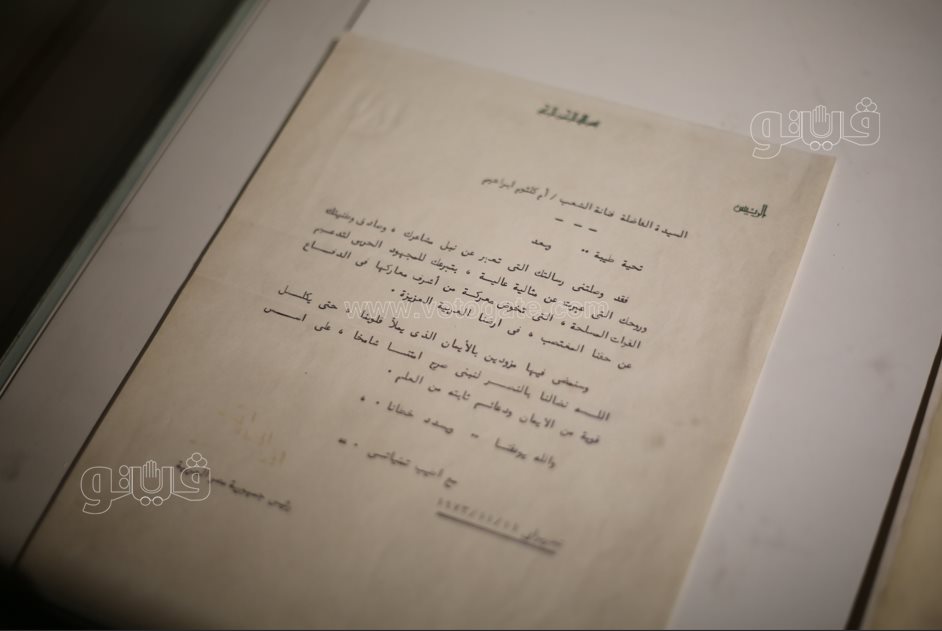 فيتو
الرئيس
السيدة الفاضلة فنانة الشعب / أم كلثوم ابراهيم
تحية طيبة .. وبعد
فقد وصلتنى رسالتك التى تعبر عن نبل مشاعرك ، وصادق وطنيتك
وروحك التى عبرت عن مثالية عالية ، بتبرعك للمجهود الحربى لتدعيم
القوات المسلحة ، التى تخوض معركة من أشرف معاركها فى الدفاع
عن حقنا المغتصب ، فى ارضنا العربية العزيزة .
www.vetogate.com
وسنمضى فيها مزودين بالأيمان الذى يملأ قلوبنا ، حتى يكلل
اللـه نضالنا بالنصـر لنبنى صرح امتنـا شامخا ، على اسس
قوية من الايمان ودعائم ثابته من العلم .
والله يوفقنـا .. ويسدد خطانا . ،
مع أطيب تمنياتى . ،،
رئيس جمهورية مصر العربية
فيتو